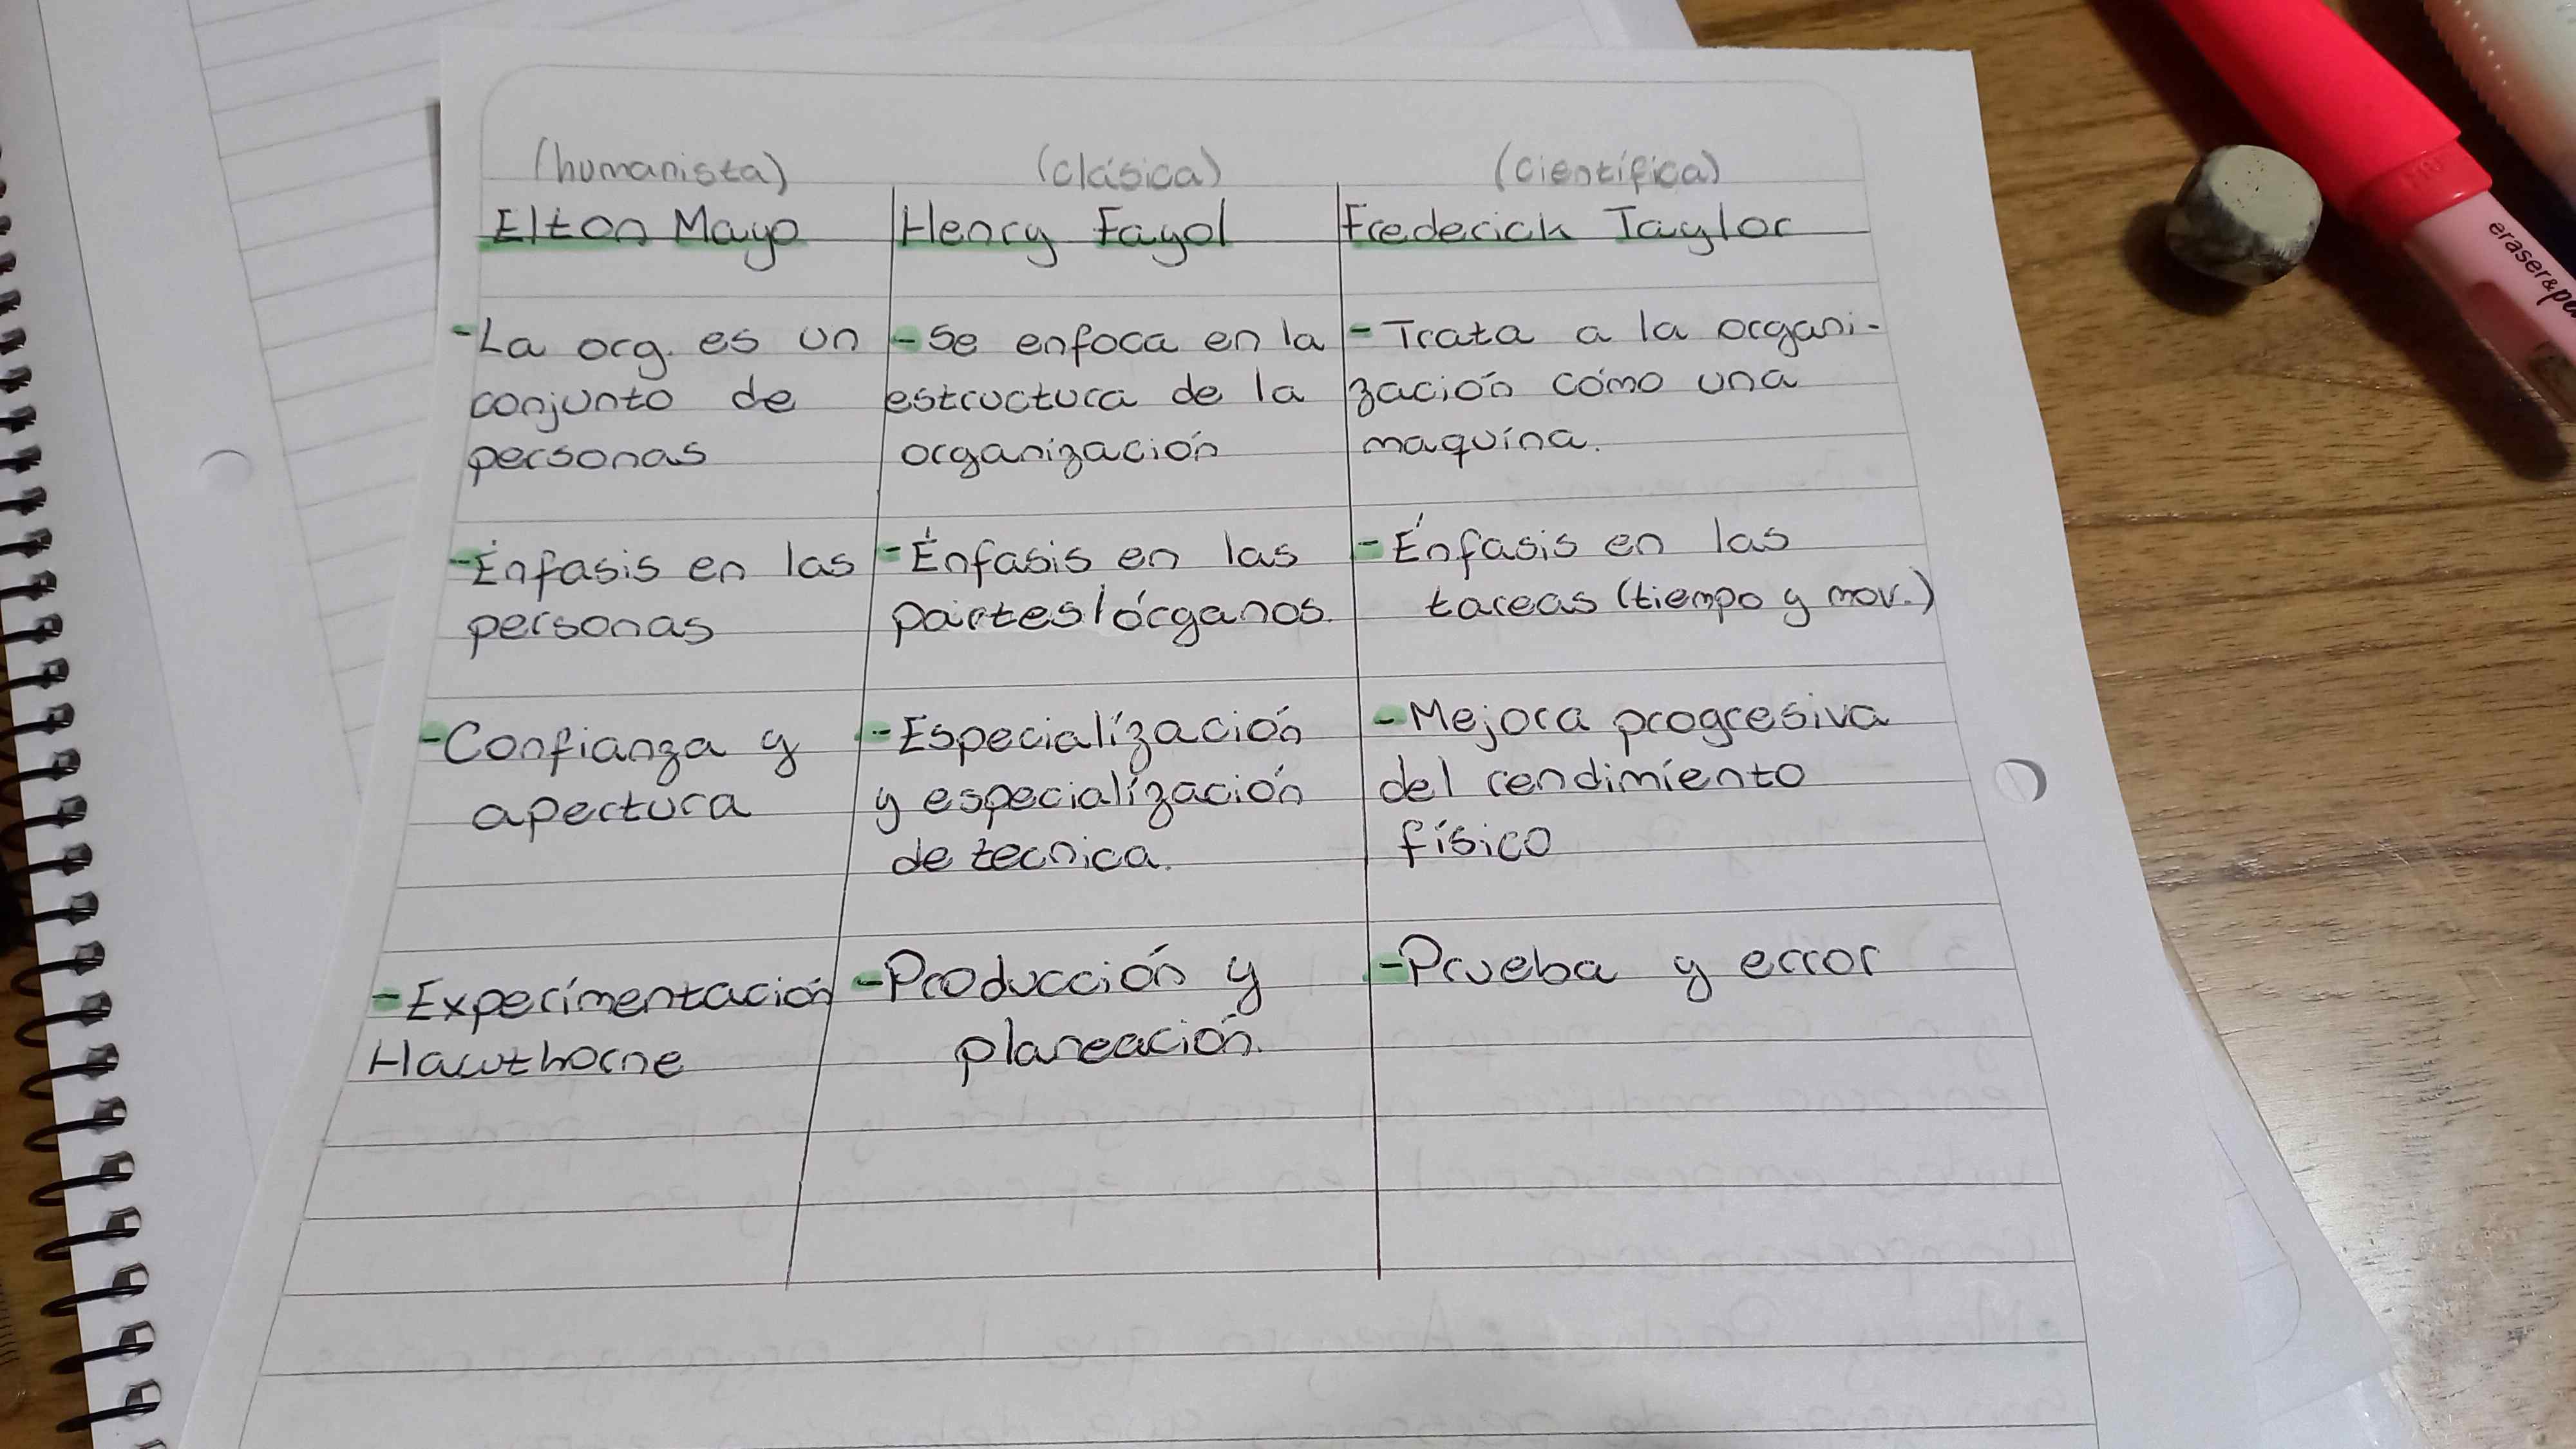 (humanista)
Elton Mayo
-La org. es un
conjunto de
personas
-Énfasis en las
personas
-Confianza y
apertura
-Experimentación
Hawthorne
(clásica)
Henry Fayol
-Se enfoca en la
estructura de la
organización
-Énfasis en las
partes/órganos.
-Especialización
y especialización
de tecnica.
-Producción y
planeación.
(científica)
Frederick Taylor
-Trata a la organi-
zación cómo una
maquína.
-Énfasis en las
tareas (tiempo y mov.)
-Mejora progresiva
del rendimiento
físico
-Prueba y error
eraser&